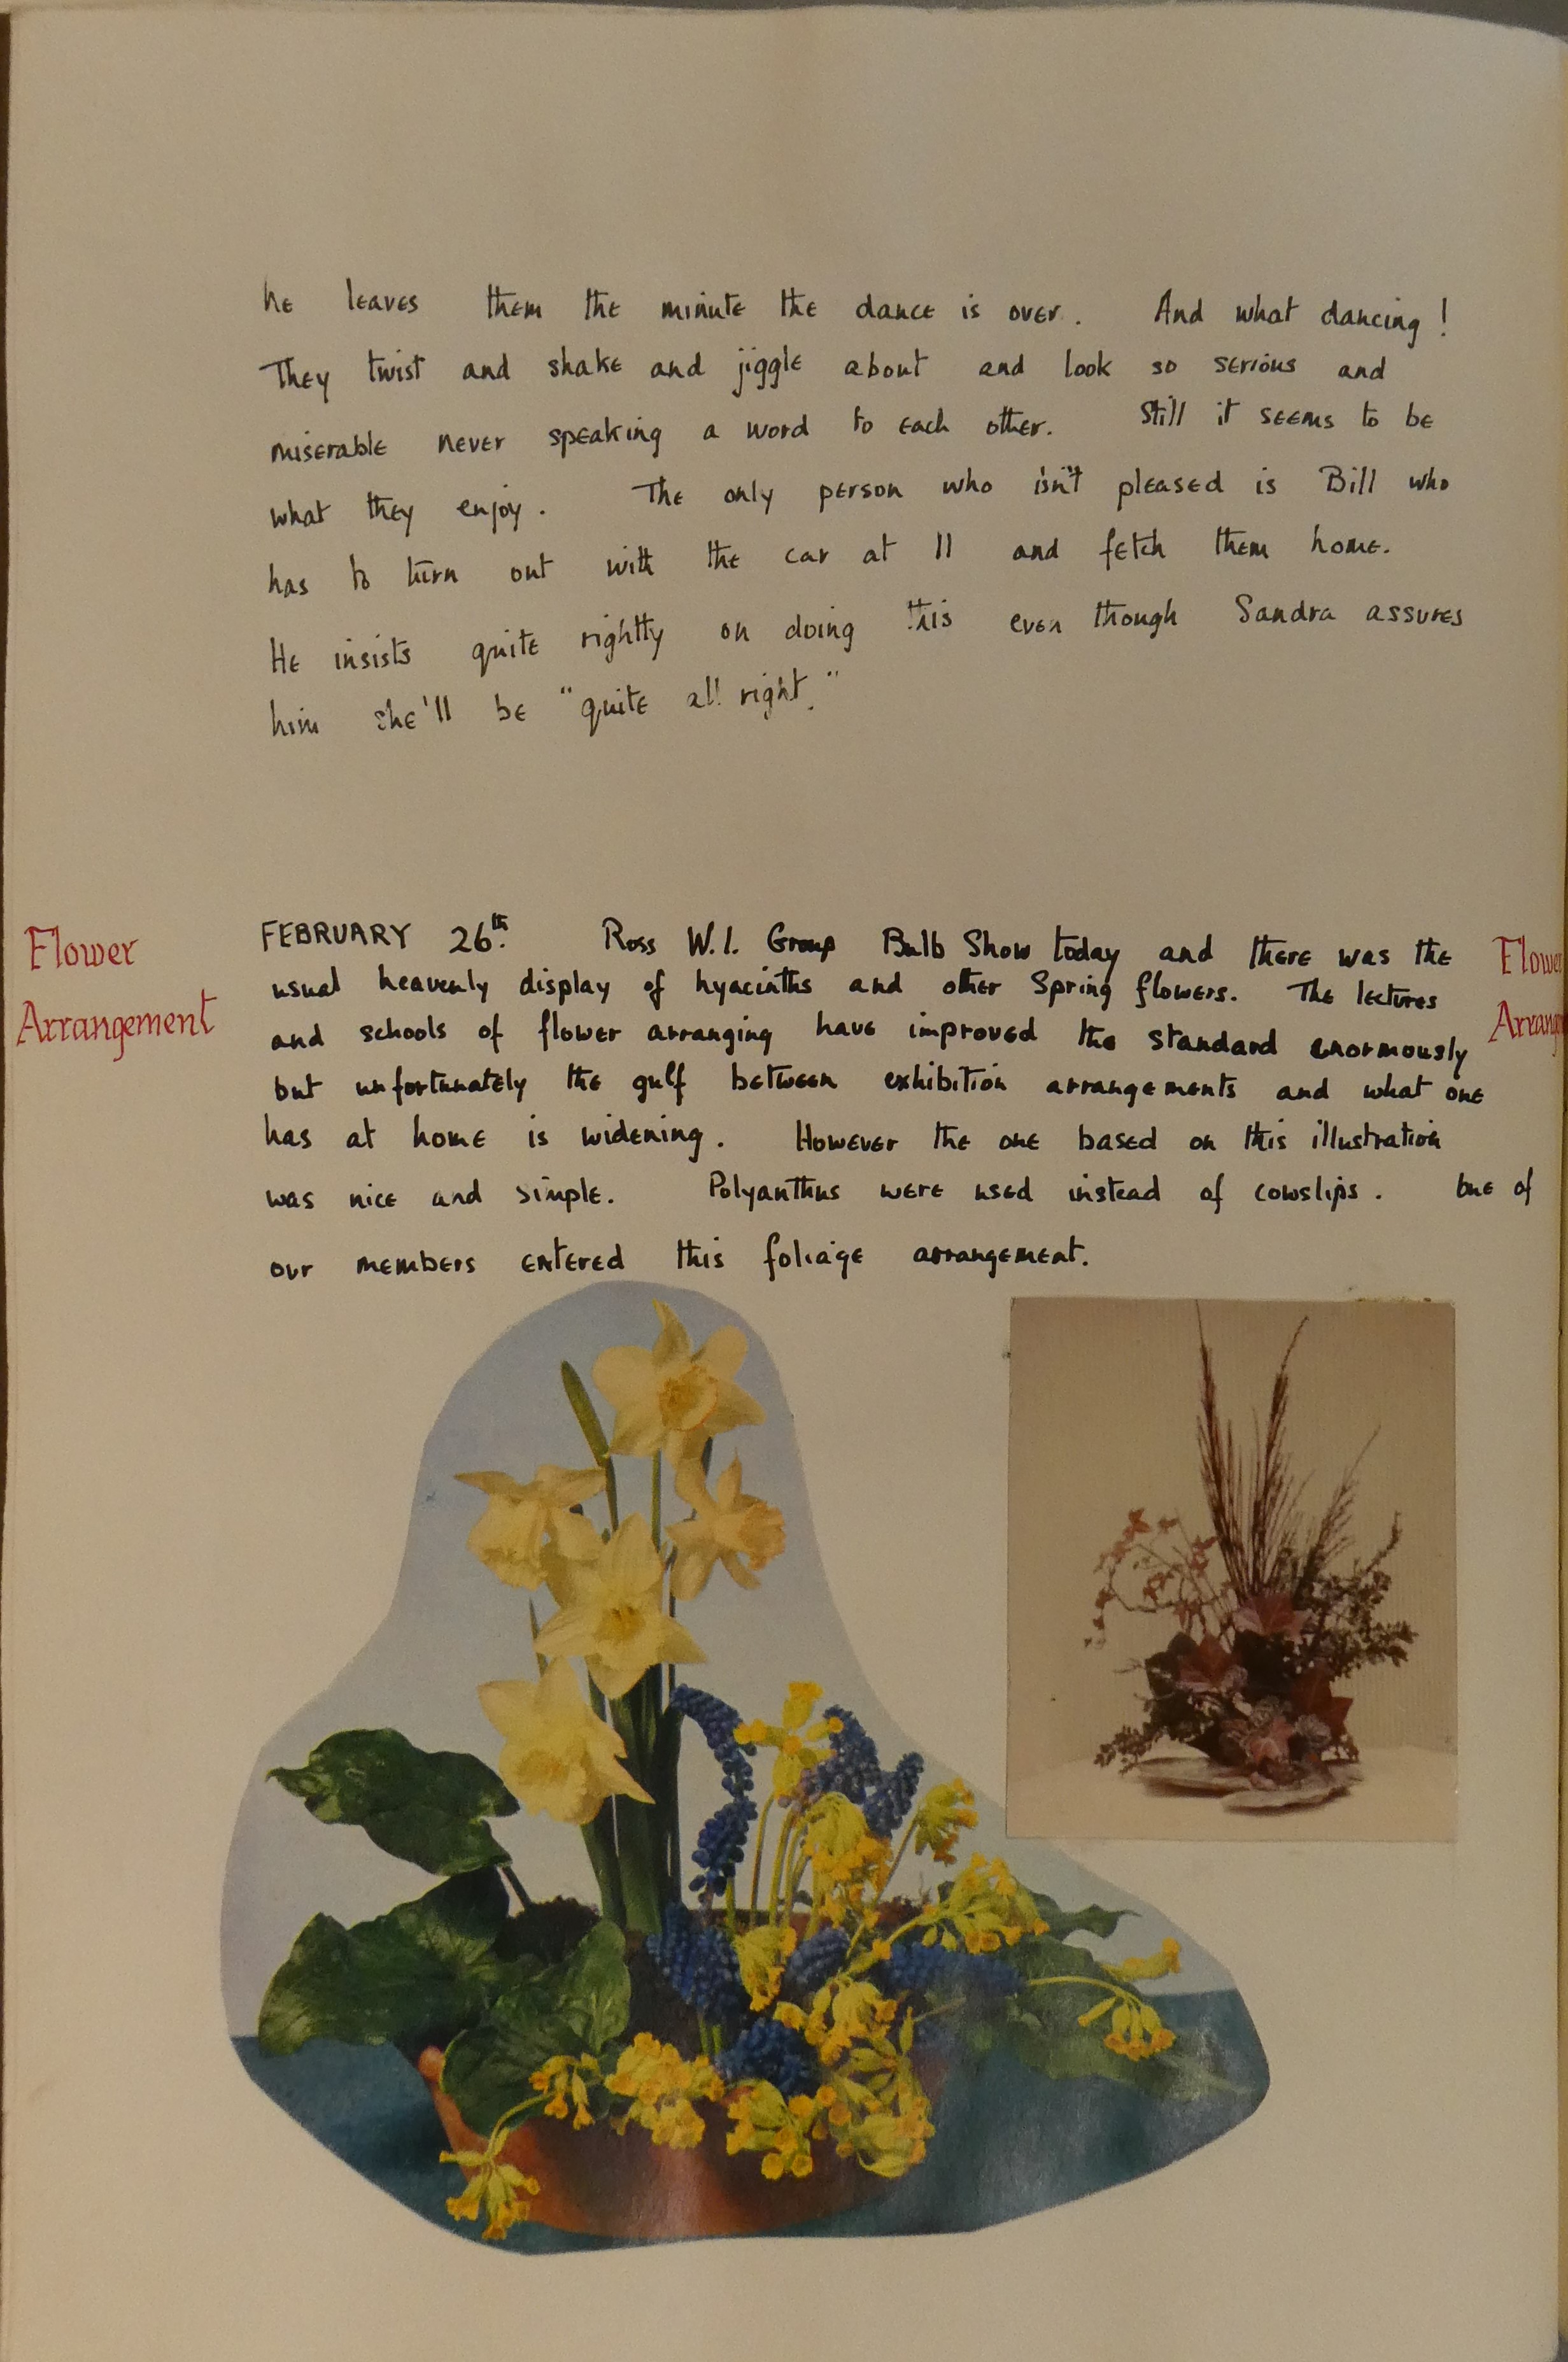 he leaves them the minute the dance is over. And what dancing!
They twist and shake and jiggle about and look so serious and
miserable never speaking a word to each other. Still it seems to be
what they enjoy. The only person who isn't pleased is Bill who
has to turn out with the car at 11 and fetch them home.
He insists quite rightly on doing this even though Sandra assures
him she'll be "quite all right."
Flower
Arrangement
FEBRUARY 26th. Ross W.I. Group Bulb Show today and there was the
usual heavenly display of hyacinths and other Spring flowers. The lectures
and schools of flower arranging have improved the standard enormously
but unfortunately the gulf between exhibition arrangements and what one
has at home is widening. However the one based on this illustration
was nice and simple. Polyanthus were used instead of cowslips. One of
our members entered this foliage arrangement.
Flower
Arrang